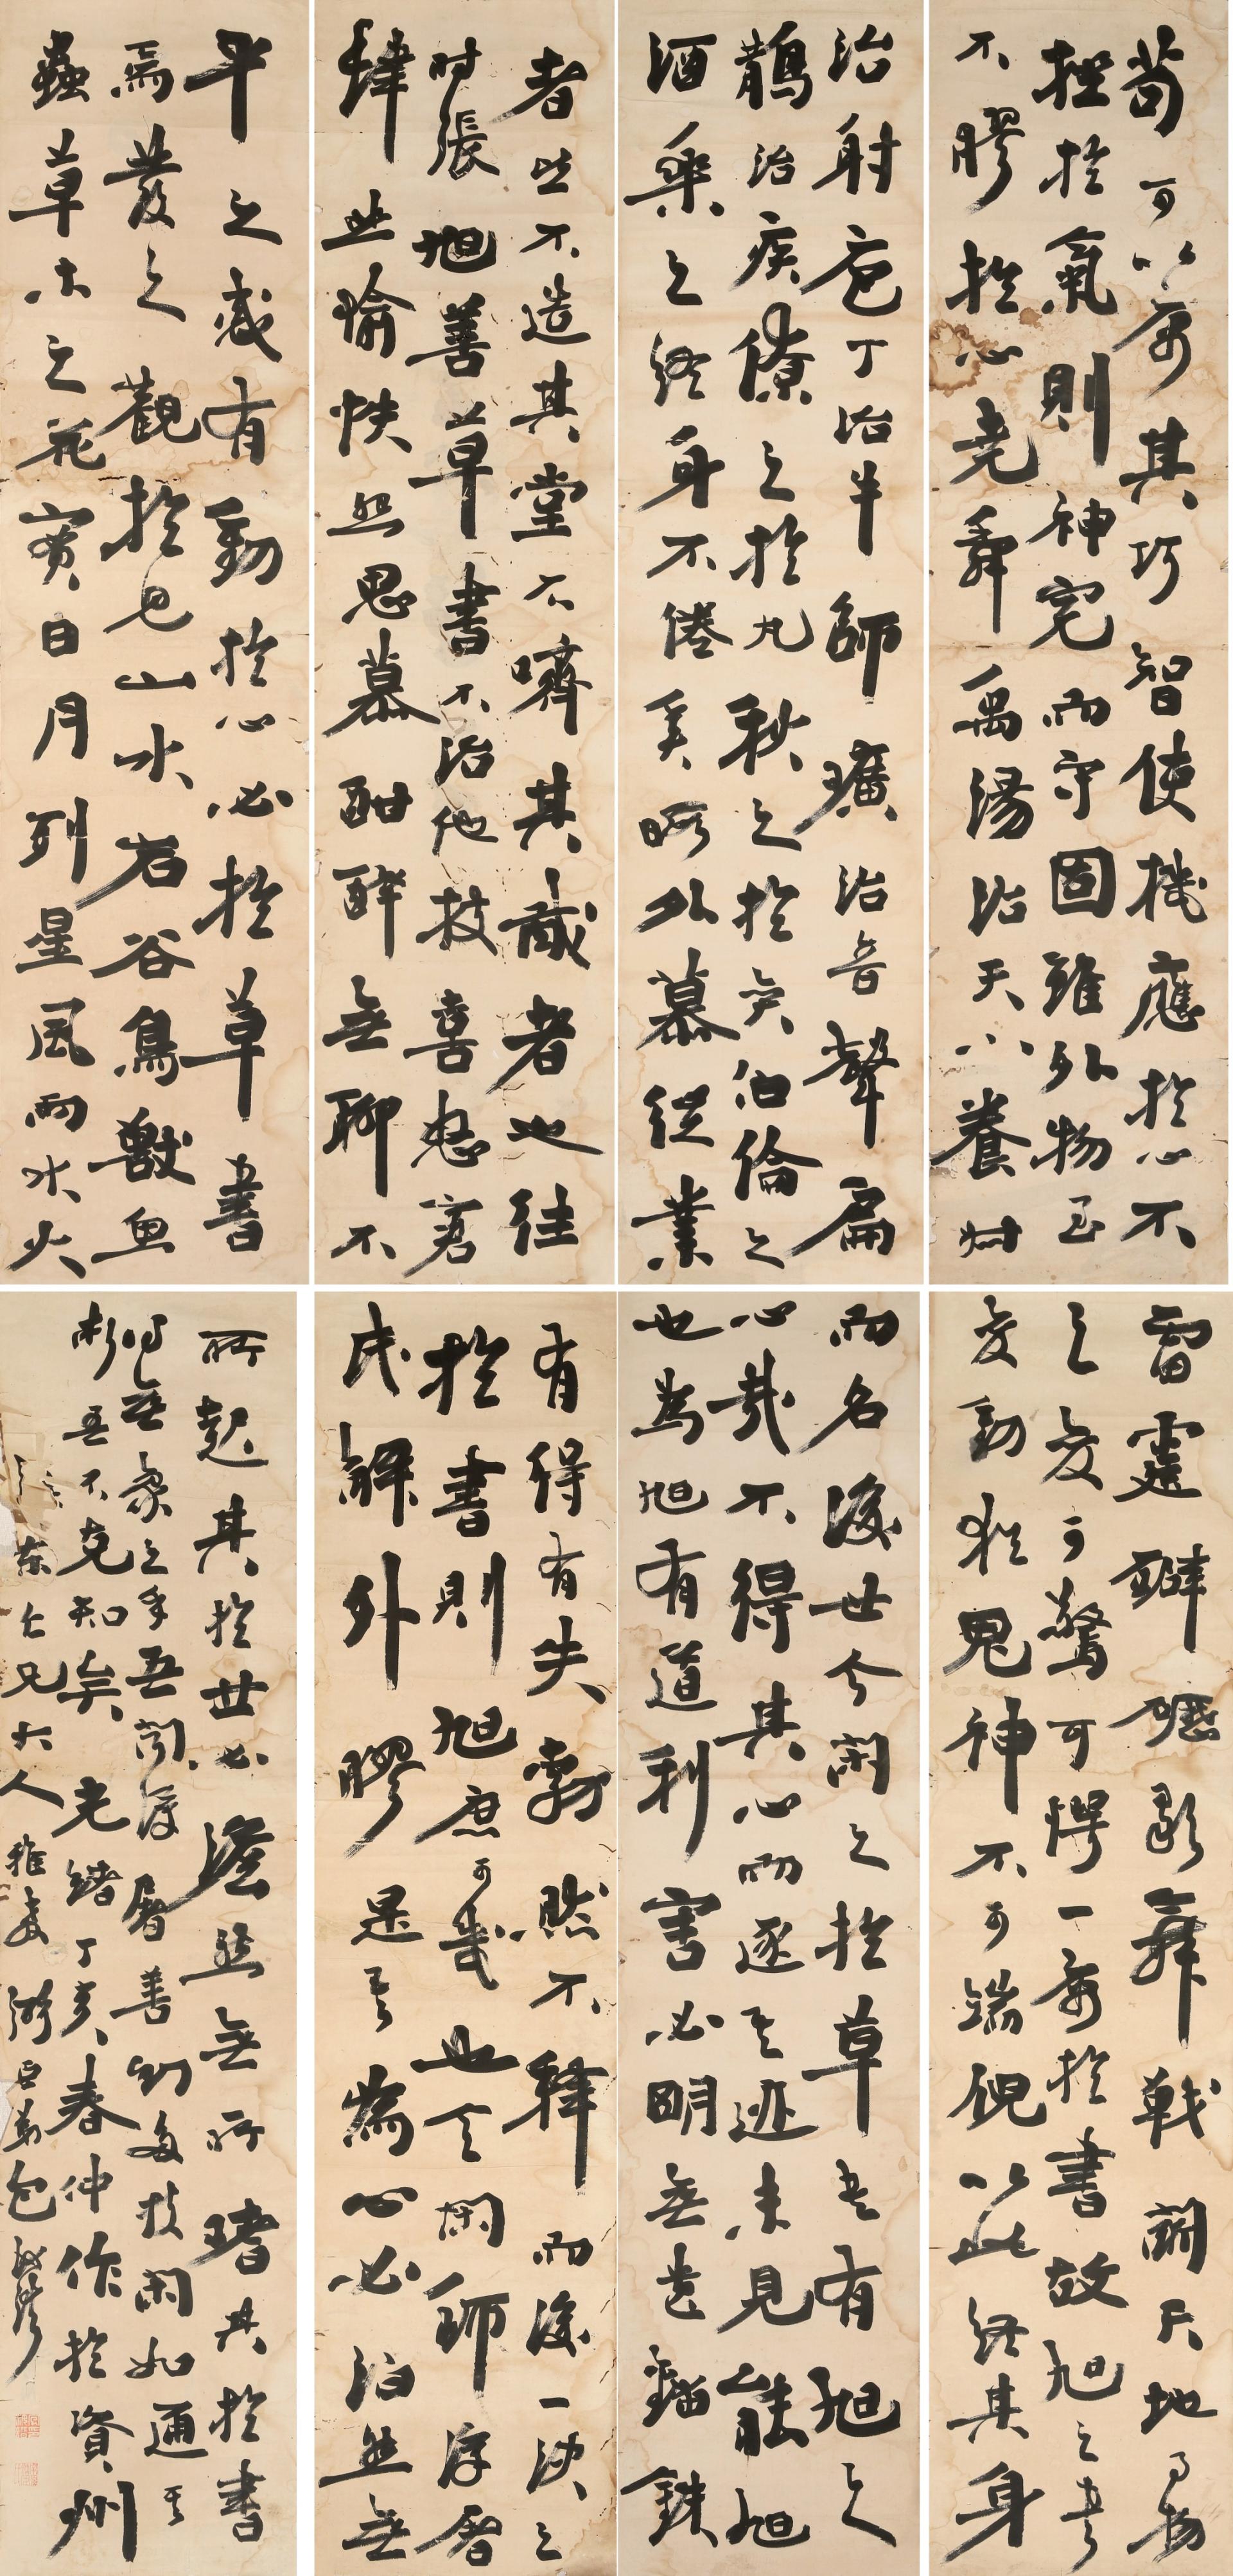 苟可以寓其巧智使機應於心不
挫於氣則神完而守固雖外物至
不膠於心堯舜禹湯治天下養叔
治射庖丁治牛師曠治音聲扁
鵲治疾僚之於丸秋之於奕伯倫之
酒樂之終身不倦奚暇外慕徙業
者皆不造其堂不嚌其胾者也往
時張旭善草書不治他技喜怒窘
愉佚怨思慕酣醉無聊不
平之感有動於心必於草書
焉發之觀於見山水岩谷鳥獸魚
蟲草木之花實日月列星風雨水火
雷霆霹靂歌舞戰鬭天地事物
之變可驚可愕一寓於書故旭之書
變動猶鬼神不可端倪以此終其身
而名後世今閑之於草書有旭之
心哉不得其心而逐其迹未見能旭
也為旭有道利害必明無遺錙銖
有得有失勃然不釋而後一決之
於書則旭庶可幾也今閑師浮屠
氏解外膠是其為心必泊然無
所起其於世必淡然無所嗜其於書
得無象之乎吾聞浮屠善幻多技閑如通其
術吾不克知矣 光緒丁亥春仲作於資州
東七兄大人雅教 弟包